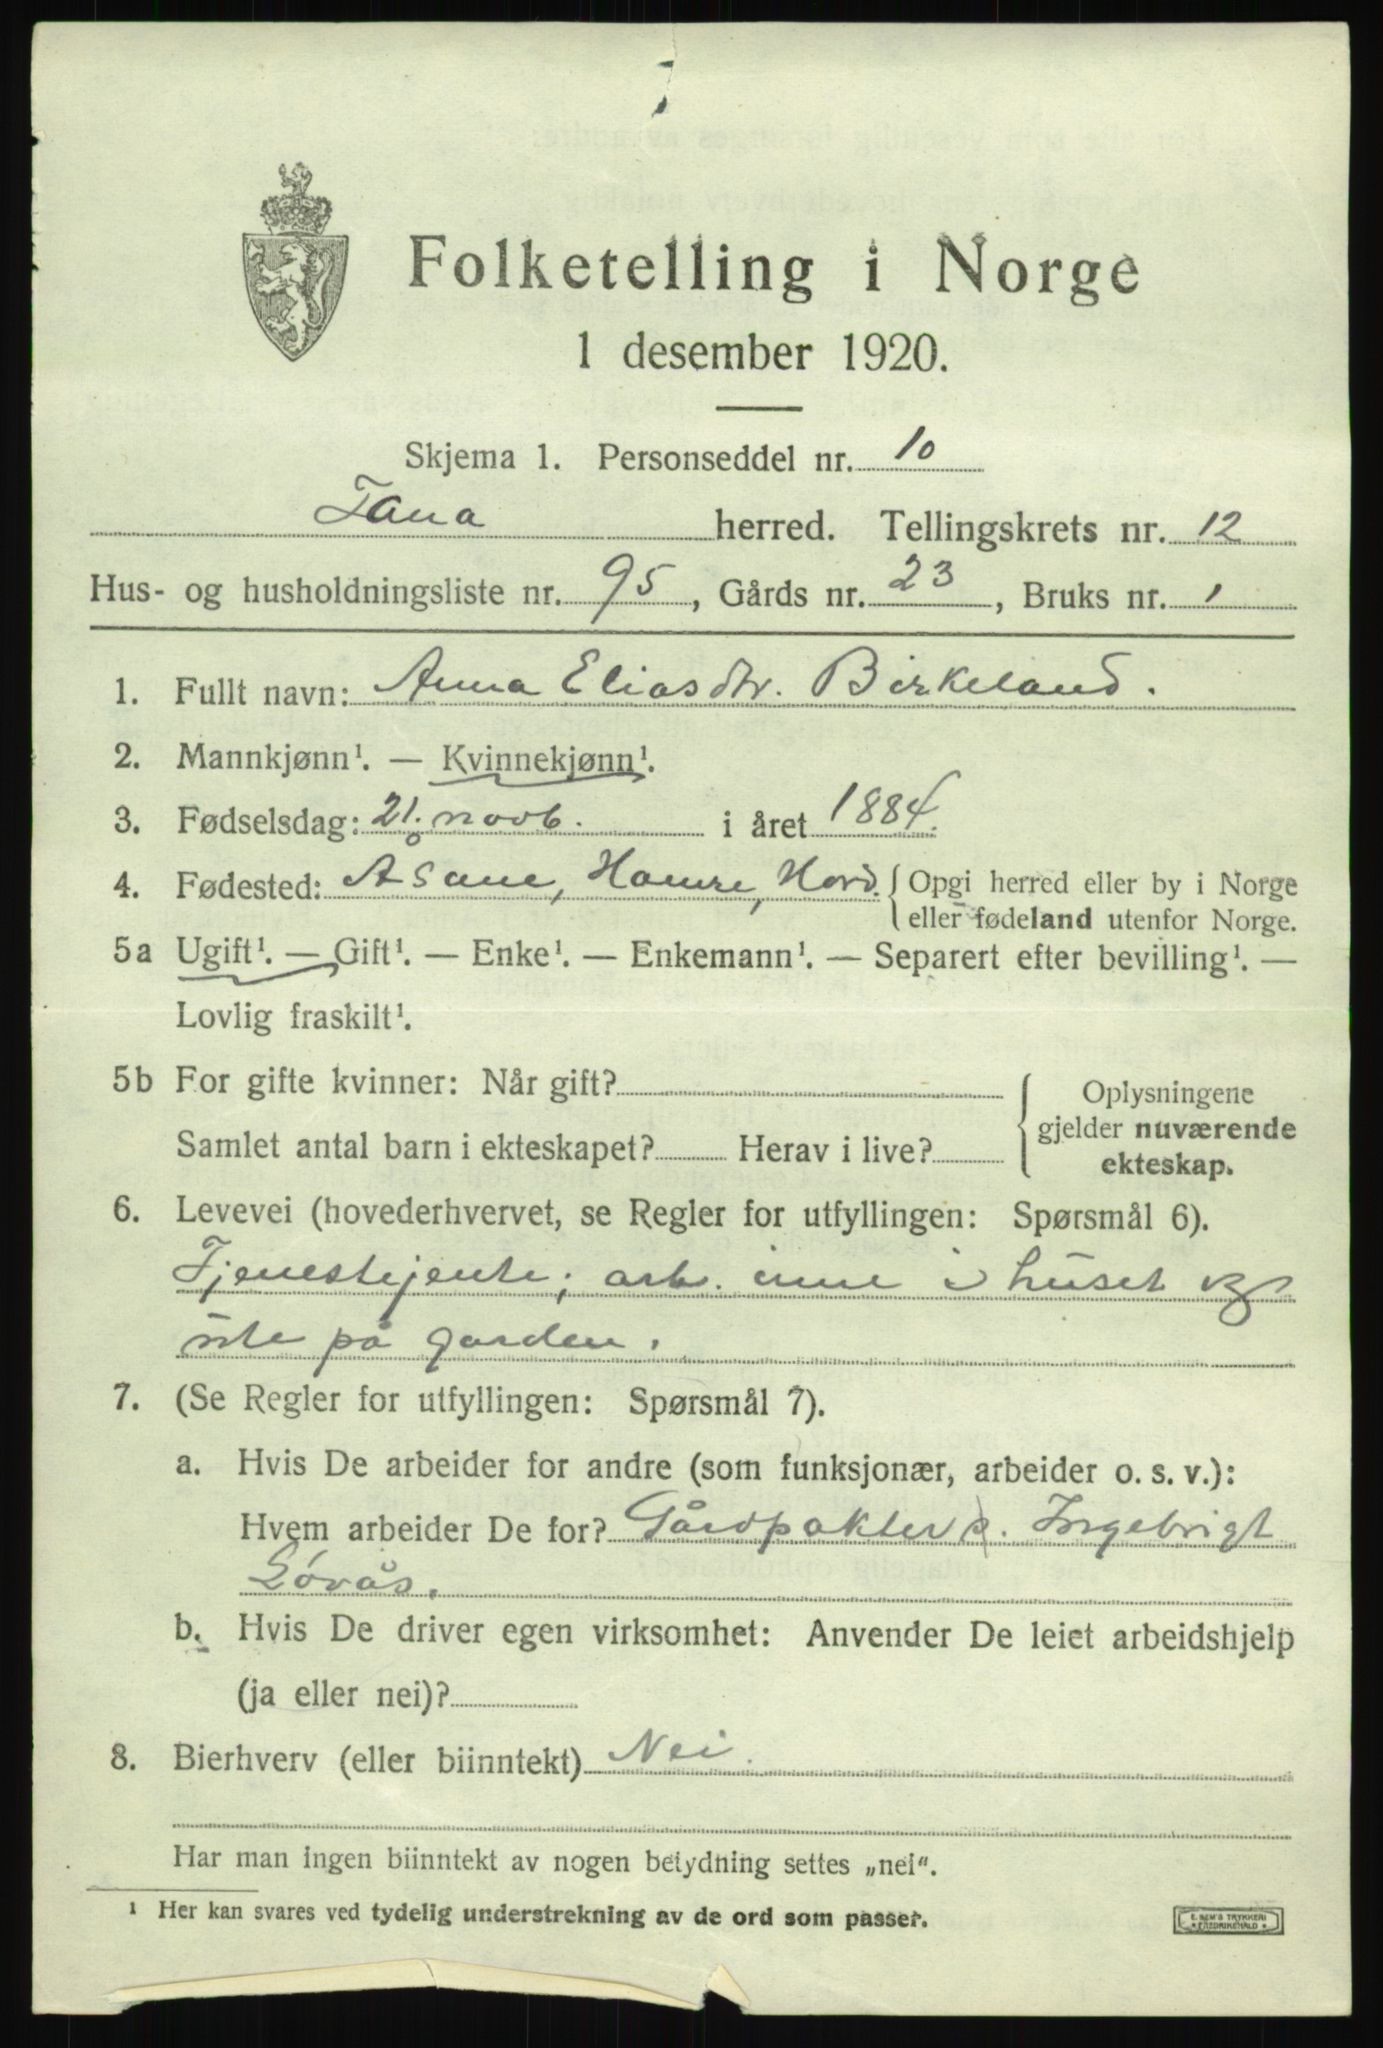 Folketelling i Norge
1 desember 1920.
Skjema 1. Personseddel nr. 10
Tana herred. Tellingskrets nr. 12
Hus- og husholdningsliste nr. 95, Gårds nr. 23, Bruks nr. 1
1. Fullt navn: Anna Eliasdtr. Birkeland.
2. Mannkjønn¹. — Kvinnekjønn¹.
3. Fødselsdag: 21. novb. i året 1884.
4. Fødested: Åsane, Hamre, Hord. { Opgi herred eller by i Norge
eller fødeland utenfor Norge.
5a Ugift¹. — Gift¹. — Enke¹. — Enkemann¹. — Separert efter bevilling¹. —
Lovlig fraskilt¹.
5b For gifte kvinner: Når gift?
Samlet antal barn i ekteskapet? Herav i live?
{ Oplysningene
gjelder nuværende
ekteskap.
6. Levevei (hovederhvervet, se Regler for utfyllingen: Spørsmål 6).
Tjenestejente; arb. inne i huset og
ute på garden.
7. (Se Regler for utfyllingen: Spørsmål 7).
a. Hvis De arbeider for andre (som funksjonær, arbeider o. s. v.):
Hvem arbeider De for? Gårdpakter Ingebrigt
Løvås.
b. Hvis De driver egen virksomhet: Anvender De leiet arbeidshjelp
(ja eller nei)?
8. Bierhverv (eller biinntekt) Nei.
Har man ingen biinntekt av nogen betydning settes „nei“.
¹ Her kan svares ved tydelig understrekning av de ord som passer.
E. SEM'S TRYKKERI
FREDRIKSHALD